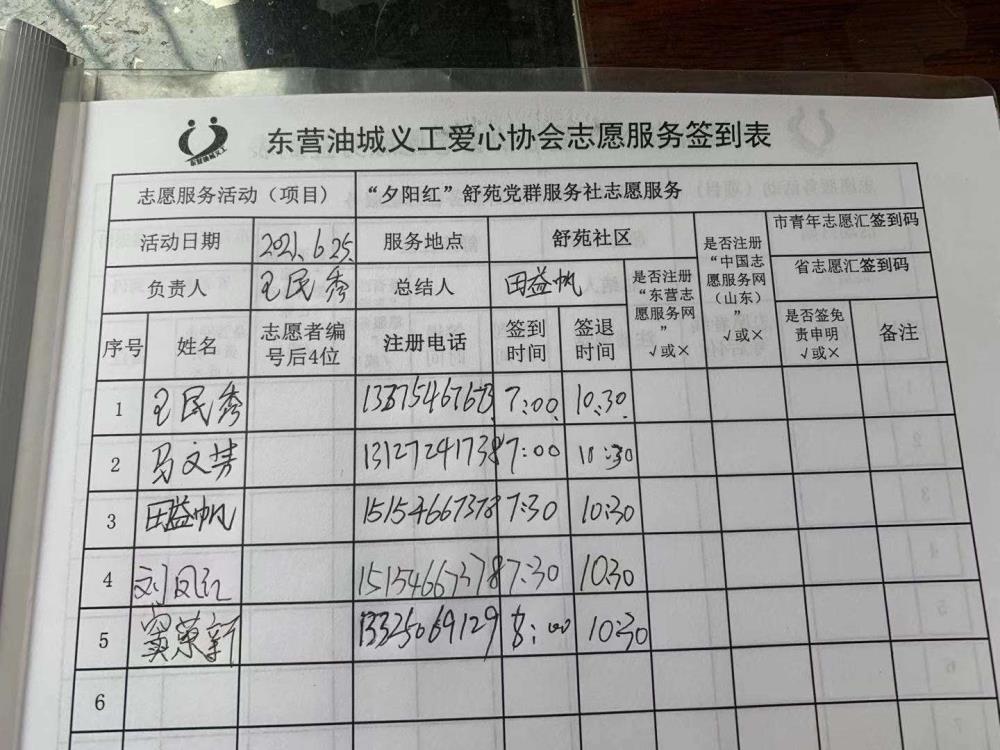 东营油城义工
东营油城义工爱心协会志愿服务签到表
志愿服务活动（项目） “夕阳红”舒苑党群服务社志愿服务
活动日期 2021.6.25. 服务地点 舒苑社区 是否注册“中国志愿服务网（山东）” √或× 市青年志愿汇签到码
负责人 王民秀 总结人 田益帆 是否注册“东营志愿服务网” √或× 省志愿汇签到码
序号 姓名 志愿者编号后4位 注册电话 签到时间 签退时间 是否签免责申明 √或× 备注
1 王民秀 7:00 10:30
2 马文芳 13127241738 7:00 10:30
3 田益帆 15154667378 7:30 10:30
4 15154667378 7:30 10:30
5 窦荣新 13325069129 8:00 10:30
6